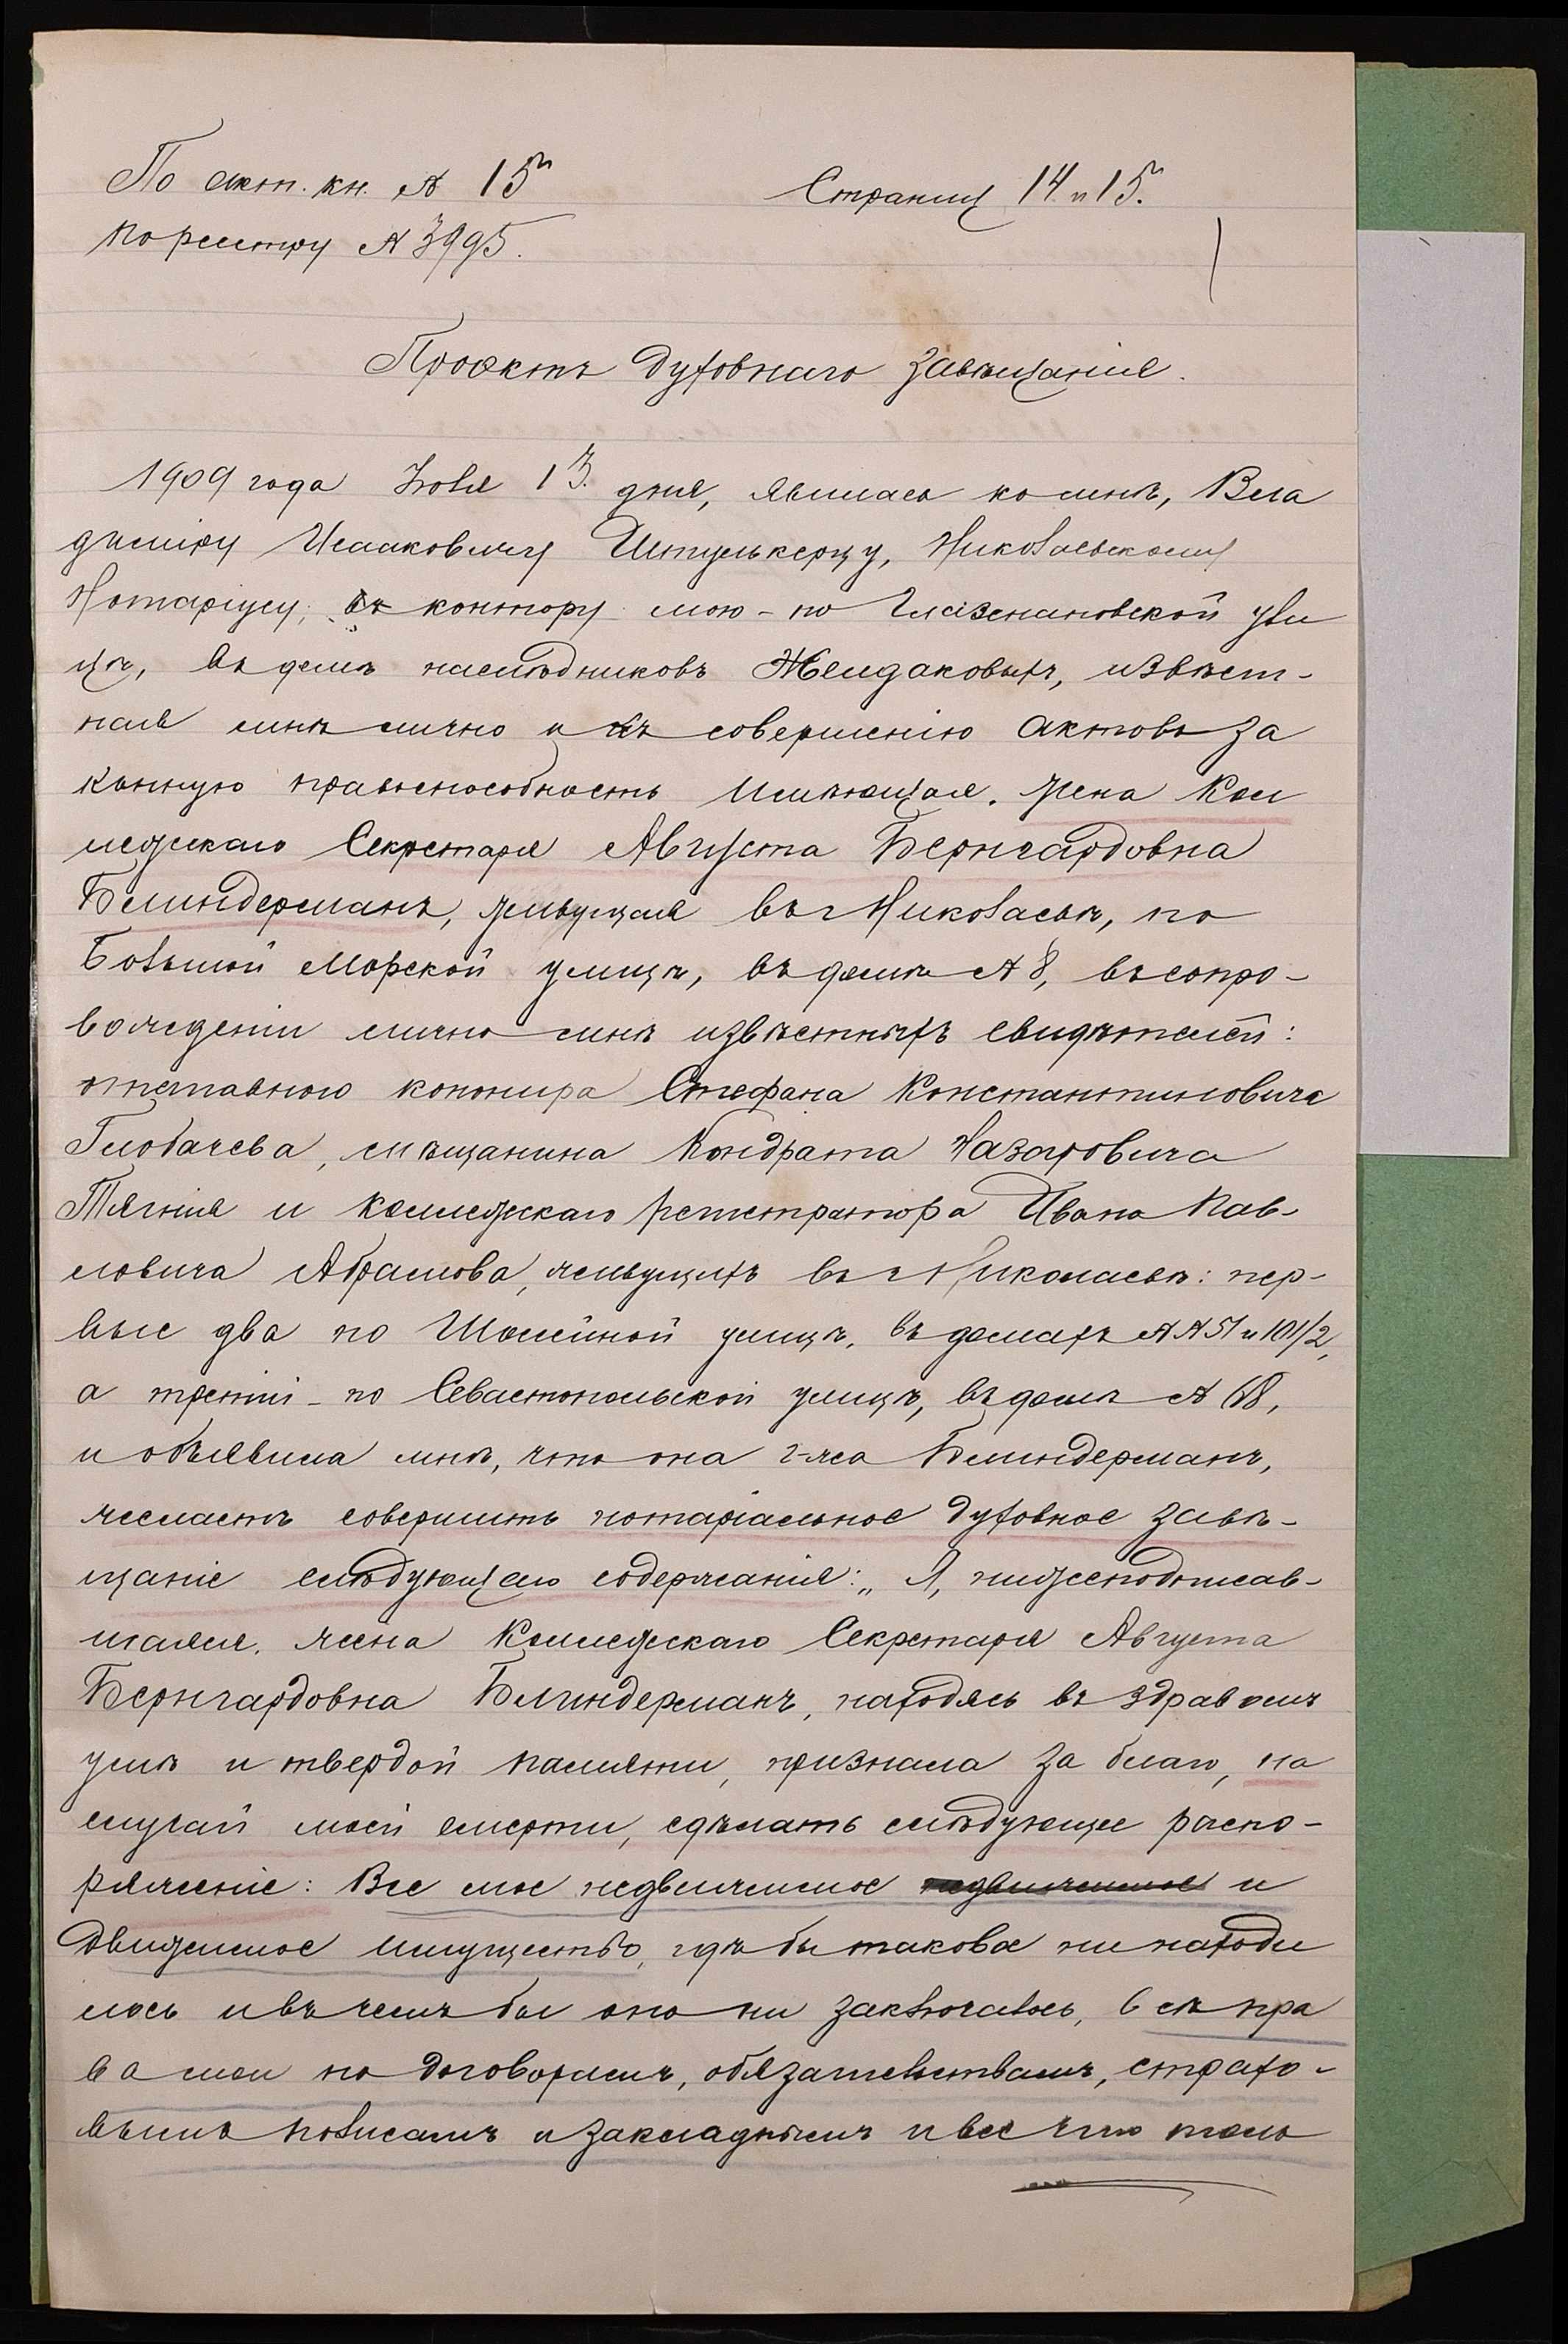 По акт. кн. № 15
Страниц 14 и 15.
по реестру № 3995.
Проэктъ духовнаго завѣщанія.
1909 года Іюля 13. дня, явилась ко мнѣ, Вла
диміру Исааковичу Штулькерцу, Николаевскому
Нотаріусу, въ контору мою - по Глазенаповской ули
цѣ, въ домѣ наслѣдниковъ Желудаковыхъ, извѣст-
ная мнѣ лично и къ совершенію актовъ за
конную правоспособность имѣющая, жена Кол
лежскаго Секретаря Августа Бернгардовна
Блиндерманъ, живущая въ г. Николаевѣ, по
Большой Морской улицѣ, въ домѣ № 8, въ сопро-
вожденіи лично мнѣ извѣстныхъ свидѣтелей:
отставного кондуктора Стефана Константиновича
Глобачева, мѣщанина Кондрата Назаровича
Тягния и коллежскаго регистратора Ивана Пав-
ловича Абрамова, живущихъ въ г. Николаевѣ: пер-
вые два по Шоссейной улицѣ, въ домахъ №№ 51 и 101/2,
а третій - по Севастопольской улицѣ, въ домѣ № 68,
и объявила мнѣ, что она г-жа Блиндерманъ,
желаетъ совершить нотаріальное духовное завѣ-
щаніе слѣдующаго содержанія: „Я, нижеподписав-
шаяся, жена Коллежскаго Секретаря Августа
Бернгардовна Блиндерманъ, находясь въ здравомъ
умѣ и твердой памяти, признала за благо, на
случай моей смерти, сдѣлать слѣдующее распо-
ряженіе: Все мое недвижимое недвижимое и
движимое имущество, гдѣ бы таковое ни находи
лось и въ чемъ бы оно ни заключалось, всѣ пра
ва мои по договорамъ, обязательствамъ, страхо-
вымъ полисамъ и закладнымъ и все что толь